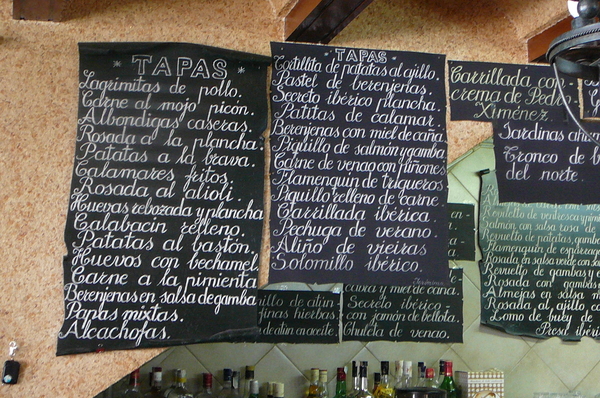 * TAPAS *
Lagrimitas de pollo.
Carne al mojo picón.
Albondigas caseras.
Rosada a la plancha.
Patatas a la brava.
Calamares fritos.
Rosada al alioli.
Huevas rebozada y plancha
Calabacin relleno.
Patatas al bastón.
Huevos con bechamel
Carne a la pimienta
Berenjenas en salsa de gamba
Papas mixtas.
Alcachofas.
* TAPAS *
Tortillita de patatas al ajillo.
Pastel de berenjenas.
Secreto ibérico plancha.
Patitas de calamar.
Berenjenas con miel de caña
Piquillo de salmón y gamba
Carne de venao con piñones
Flamenquin de trigueros
Piquillo relleno de carne
Carrillada ibérica.
Pechuga de verano.
Aliño de vieiras
Solomillo ibérico.
illo de atún
finas hierbas.
de atin en aceite.
caviá y miel de cana.
Secreto ibérico
con jamón de bellota.
Chuleta de venao.
Carrillada con
crema de Pedro
Ximénez.
Sardinas ahum
Tronco de b
del norte.
Revuelto de ventresca y pim
Salmon con salsa rosa de
Revuelto de patatas, gambas
Flamenquin de espárragos
Rosada en salsa verde con al
Revuelto de gambas y e
Rosada con gambas
Almejas en salsa m
Rosada al ajillo co
Lomo de buey de
Presa ibérica